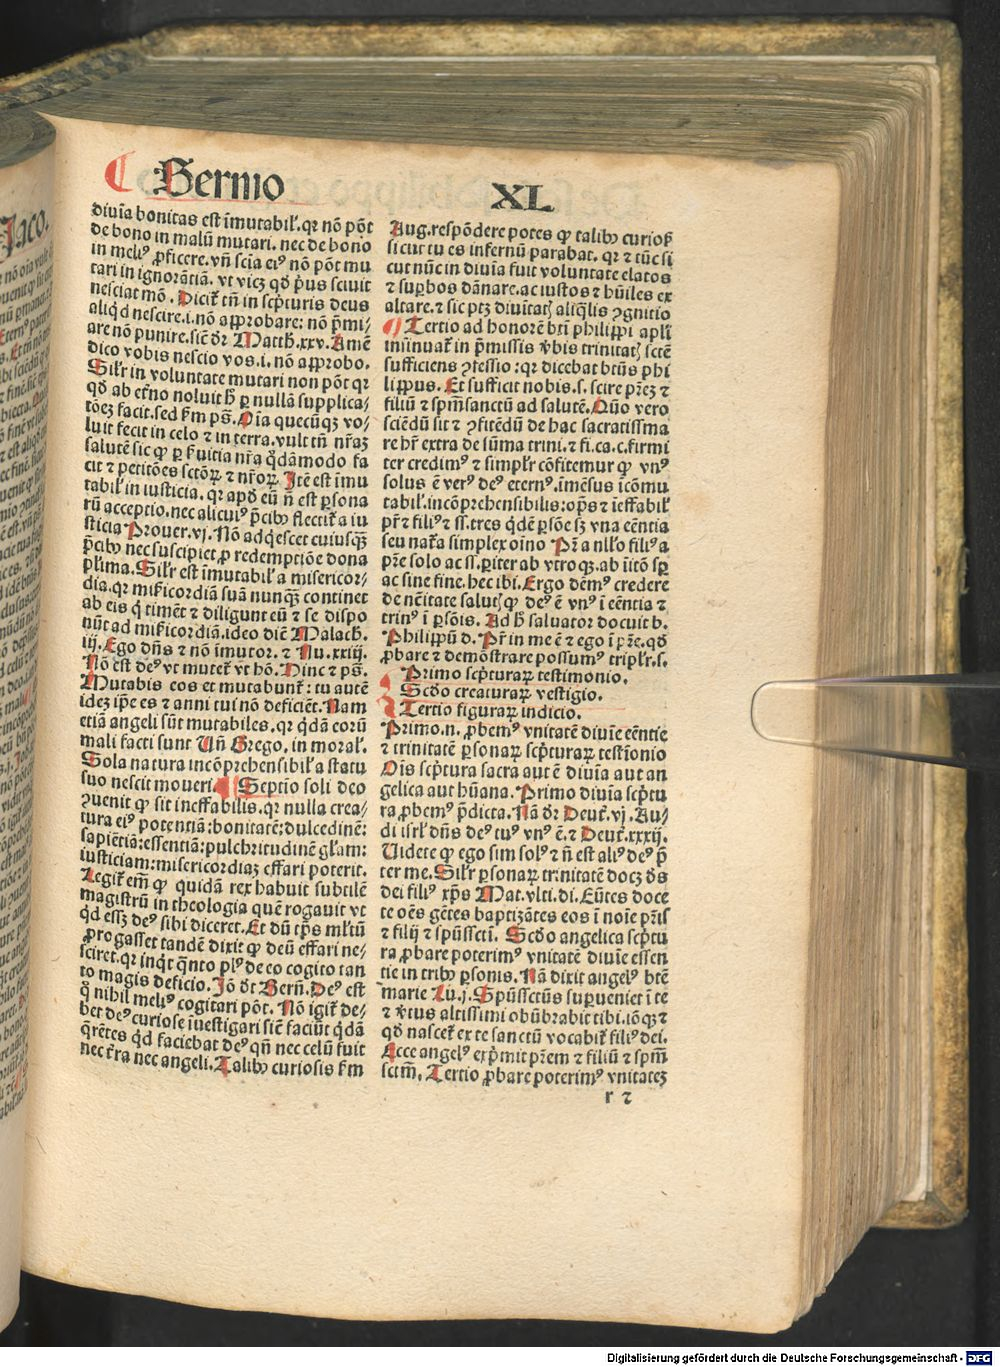 Sermo XL
diuīa bonitas est īmutabil'. qr nō pōt
de bono in malū mutari. nec de bono
in meli⁹ ꝓficere. vn̄ scīa ei⁹ nō pōt mu
tari in ignorātiā. vt vicꝫ qd̓ p̓us sciuit
nesciat mō. Dicit᷑ tn̄ in scp̓turis deus
aliqd nescire. i. nō aꝓprobare: nō p̄mi-
are nō punire. sic̄ dr̄ Matth. xxv. Amē
dico vobis nescio vos. i. nō aꝓprobo.
Sil'r in voluntate mutari non pōt qr
qd̓ ab et̓no noluit h̓ ꝑ nullā supplica-
tōeꝫ facit. sed ẜm ps̄. Oīa quecūqꝫ vo-
luit fecit in celo ⁊ in terra. vult tn̄ nr̄aꝫ
salutē sic ꝙ ꝑ ẜuitia nr̄a qd̄āmodo fa
cit ⁊ petitōes sctōꝝ ⁊ nr̄oꝝ Itē est īmu
tabil' in iusticia. qr apd̓ eū n̄ est ꝑsona
rū acceptio. nec alicui⁹ p̄cib⁹ flectit᷑ a iu
sticia Prouer. vj. Nō adqescet cuiusqꝫ
p̄cib⁹ nec suscipiet ꝓ redemptiōe dona
pl'ima. Sil'r est īmutabil' a misericor-
dia. qr mīcordiā suā nunqꝫ continet
ab eis q̓ timēt ⁊ diligunt eū ⁊ se dispo
nūt ad mīcordiā. ideo dic̄ Malach.
iij. Ego dn̄s ⁊ nō īmutor. ⁊ Nu. xxiij.
Nō est de⁹ vt mutet᷑ vt hō. Hinc ⁊ ps̄.
Mutabis eos et mutabunt᷑: tu autē
ideꝫ ip̄e es ⁊ anni tui nō deficiēt. Nam
etiā angeli sūt mutabiles. qr qd̄ā corū
mali facti sunt Vn̄ Grego. in moral'.
Sola natura incōprehensibil' a statu
suo nescit moueri. Septīo soli deo
ꝯuenit ꝙ sit ineffabilis. qr nulla crea-
tura ei⁹ potentiā: bonitatē: dulcedinē:
sapiētiā: essentiā: pulchritudinē gl'am:
iusticiam: misericordiaꝫ effari poterit.
Legit᷑ em̄ ꝙ quidā rex habuit subtilē
magistrū in theologia quē rogauit vt
qd essꝫ de⁹ sibi diceret. Et dū tp̄s ml'tū
ꝓrogasset tandē dixit ꝙ deū effari ne-
sciret. qr inqt qn̄to pl⁹ de eo cogito tan
to magis deficio. Iō dt̄ Bern̄. De⁹ est
q̓ nihil meli⁹ cogitari pōt. Nō igit᷑ de-
bet de⁹ curiose īuestigari sic̄ faciūt qd̄ā
q̄rētes qd faciebat de⁹ qn̄ nec celū fuit
nec t̓ra nec angeli. Talib⁹ curiosis ẜm
Aug. respōdere potes ꝙ talib⁹ curiof᷑
sicut tu es infernū parabat. qr ⁊ tūc si
cut nūc in diuīa fuit voluntate elatos
⁊ suꝑbos dānare. ac iustos ⁊ hūiles ex
altare. ⁊ sic ptꝫ diuītatꝭ aliq̄lis ꝯgnitio
Tertio ad honorē btī philippi apl'i
insinuat᷑ in p̄missis v̓bis trinitatꝭ sctē
sufficiens ꝯfessio: qr dicebat btūs phi
lippus. Et sufficit nobis. s. scire pr̄eꝫ ⁊
filiū ⁊ spm̄sanctū ad salutē. Quō vero
sciēdū sit ⁊ ꝯfitēdū de hac sacratissīma
re hr̄ extra de sūma trini. ⁊ fi. ca. c. firmi
ter credim⁹ ⁊ simpl'r cōfitemur ꝙ vn⁹
solus ē ver⁹ de⁹ etern⁹. īmēsus īcōmu
tabil'. incōprehensibilis: op̄s ⁊ īeffabil'
pr̄ ⁊ fili⁹ ⁊ ss̄. tres qd̓ē ꝑsōe sꝫ vna eēntia
seu nat᷑a simplex oīno Pr̄ a nll'o fili⁹ a
pr̄e solo ac ss̄. ꝑiter ab vtroqꝫ. ab ītiō sꝑ
ac sine fine. hec ibi. Ergo dēm⁹ credere
de nc̄itate salutꝭ ꝙ de⁹ ē vn⁹ ī eēntia ⁊
trin⁹ ī ꝑsōis. Ad h̓ saluator docuit b.
Philippū d. Pr̄ in me ē ⁊ ego ī pr̄e. qd̓
ꝓbare ⁊ demōstrare possum⁹ tripl'r. s.
Primo scp̓turaꝝ testimonio.
Scd̓o creaturaꝝ vestigio.
Tertio figuraꝝ indicio.
Primo. n. ꝓbem⁹ vnitatē diuīe eēntie
⁊ trinitatē ꝑsonaꝝ scp̓turaꝝ testīonio
Oīs scp̓tura sacra aut ē diuīa aut an
gelica aut hūana. Primo diuīa scp̓tu
ra ꝓbem⁹ p̄dicta. Nā dr̄ Deut̓. vj. Au-
di isrl' dn̄s de⁹ tu⁹ vn⁹ ē. ⁊ Deut̓. xxxij.
Videte ꝙ ego sim sol⁹ ⁊ n̄ est ali⁹ de⁹ p̄
ter me. Sil'r ꝑsonaꝝ trinitatē docꝫ d̄s
dei fili⁹ xp̄s Mat. vlti. di. Eūtes doce
te oēs gētes baptizātes eos ī noīe pr̄is
⁊ filij ⁊ spūssctī. Scd̓o angelica scp̓tu
ra ꝓbare poterim⁹ vnitatē diuīe essen
tie in trib⁹ ꝑsonis. Nā dixit angel⁹ btē
marie Lu. j. Spūssctūs suꝑueniet ī te
⁊ v̓tus altissimi obūbrabit tibi. iōqꝫ ⁊
qd̓ nascet᷑ ex te sanctū vocabit᷑ fili⁹ dei.
Ecce angel⁹ exp̓mit pr̄em ⁊ filiū ⁊ spm̄
sctm̄. Tertio ꝓbare poterim⁹ vnitateꝫ
r 2
Jaco.
Digitalisierung gefördert durch die Deutsche Forschungsgemeinschaft - DFG